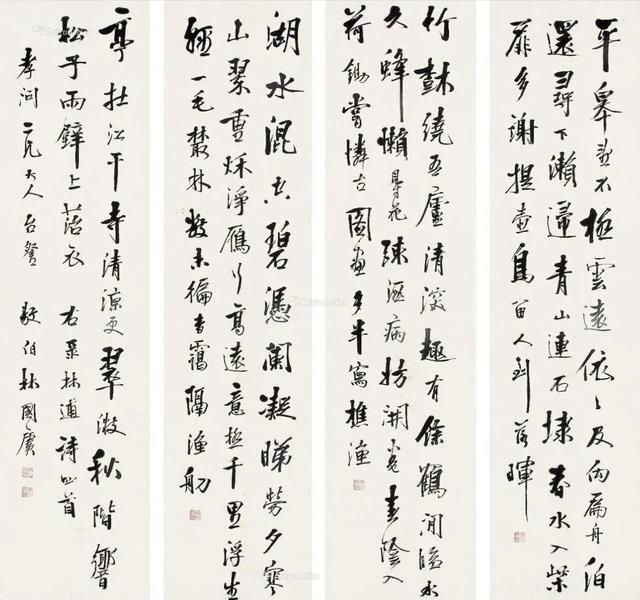 平皋望不極雲遠依〻及向扁舟泊
還尋下瀨歸青山連石埭春水入柴
扉多謝提壺鳥留人到落暉
竹樹繞吾廬清深趣有餘鶴閒臨水
久蜂懶采花疎酒病妨開卷春陰入
荷鋤嘗憐古圖畫多半寫樵漁
湖水混空碧憑闌凝睇勞夕寒
山翠重秋淨鴈行高遠意極千里浮生
輕一毛叢林數未徧杳靄隔漁舠
亭在江干寺清涼更翠微秋階響
松子雨壁上苔衣 右录林逋詩四首
孝洞二兄大人台鑒 敬伯林國賡